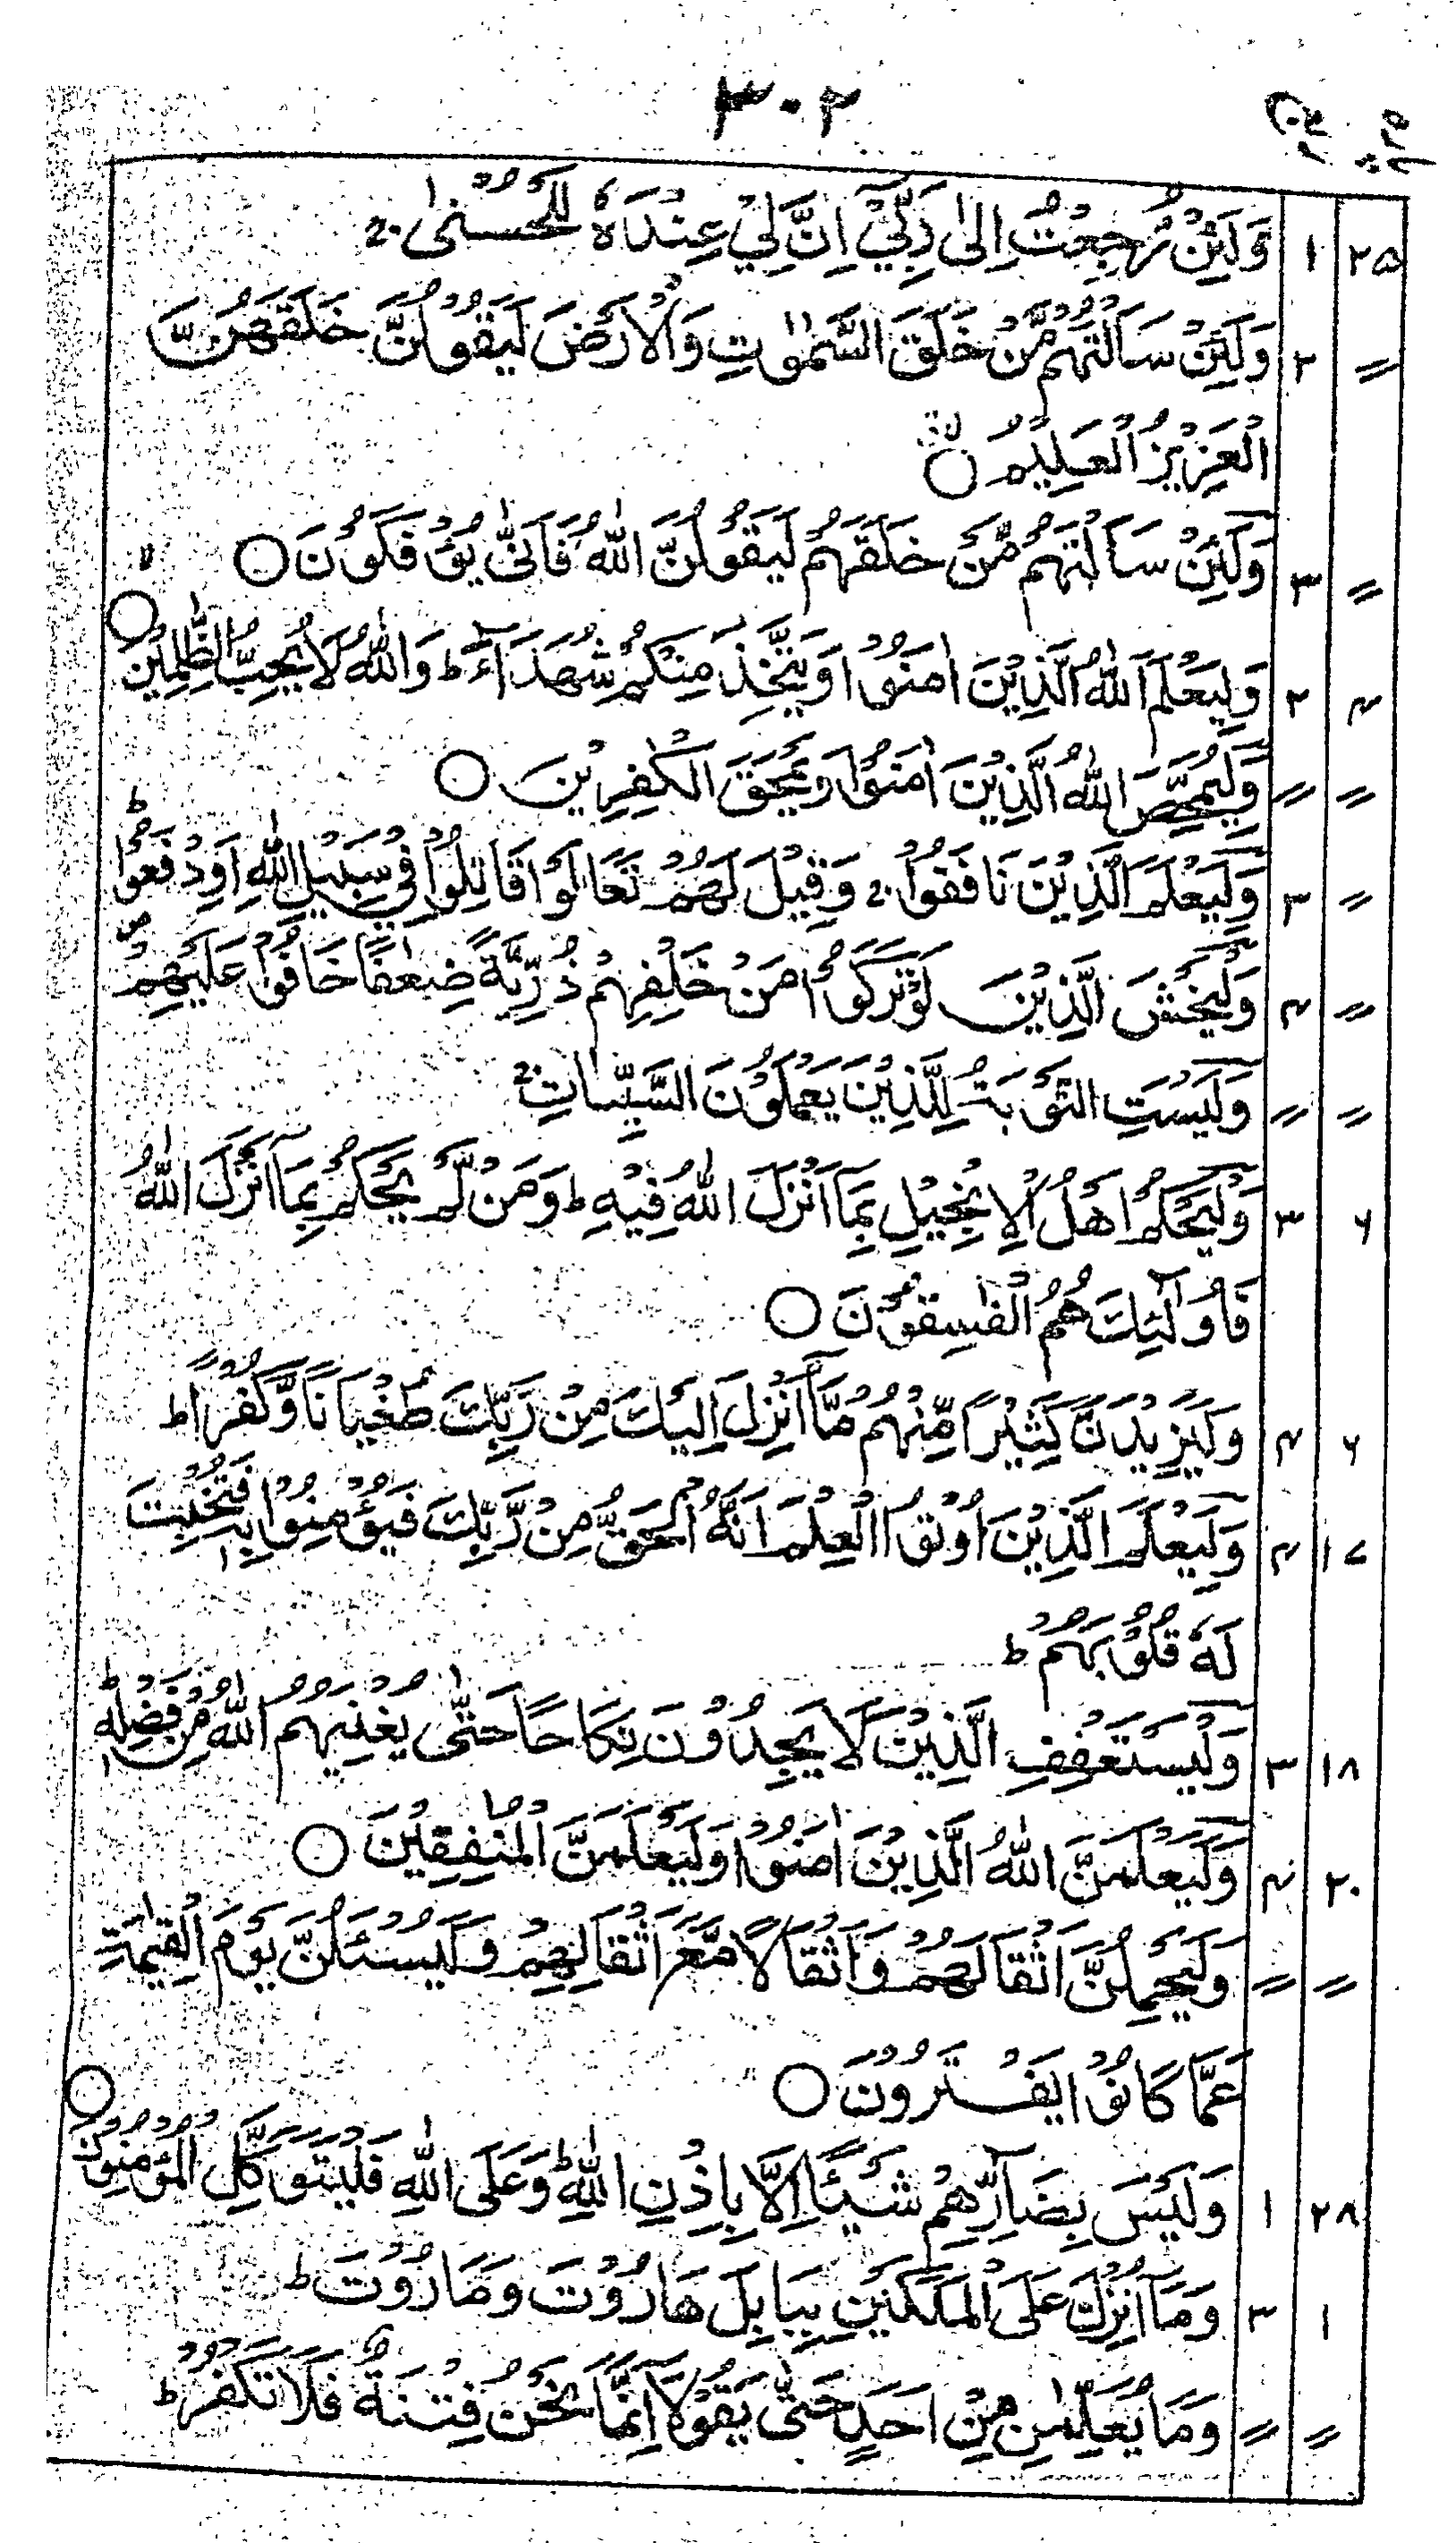 ۳۰۲
پارہ رکوع
۲۵ ۱ وَلَئِنْ رُّجِعْتُ اِلٰى رَبِّيْٓ اِنَّ لِيْ عِنْدَهٗ لَلْحُسْنٰى ج
〃 ۲ وَلَئِنْ سَاَلْتَهُمْ مَّنْ خَلَقَ السَّمٰوٰتِ وَالْاَرْضَ لَيَقُوْلُنَّ خَلَقَهُنَّ
الْعَزِيْزُ الْعَلِيْمُ ○ لا
〃 ۳ وَلَئِنْ سَاَلْتَهُمْ مَّنْ خَلَقَهُمْ لَيَقُوْلُنَّ اللّٰهُ فَاَنّٰى يُؤْفَكُوْنَ ○ لا
۴ ۲ وَلِيَعْلَمَ اللّٰهُ الَّذِيْنَ اٰمَنُوْا وَيَتَّخِذَ مِنْكُمْ شُهَدَآءَ ط وَاللّٰهُ لَا يُحِبُّ الظّٰلِمِيْنَ ○
〃 〃 وَلِيُمَحِّصَ اللّٰهُ الَّذِيْنَ اٰمَنُوْا وَيَمْحَقَ الْكٰفِرِيْنَ ○
〃 ۳ وَلِيَعْلَمَ الَّذِيْنَ نَافَقُوْا ج وَقِيْلَ لَهُمْ تَعَالَوْا قَاتِلُوْا فِيْ سَبِيْلِ اللّٰهِ اَوِدْفَعُوْا ط
〃 ۴ وَلْيَخْشَ الَّذِيْنَ لَوْ تَرَكُوْا مِنْ خَلْفِهِمْ ذُرِّيَّةً ضِعٰفًا خَافُوْا عَلَيْهِمْ ص
〃 〃 وَلَيْسَتِ التَّوْبَةُ لِلَّذِيْنَ يَعْمَلُوْنَ السَّيِّاٰتِ ج
۶ ۳ وَلْيَحْكُمْ اَهْلُ الْاِنْجِيْلِ بِمَآ اَنْزَلَ اللّٰهُ فِيْهِ ط وَمَنْ لَّمْ يَحْكُمْ بِمَآ اَنْزَلَ اللّٰهُ
فَاُولٰٓئِكَ هُمُ الْفٰسِقُوْنَ ○
۶ ۴ وَلَيَزِيْدَنَّ كَثِيْرًا مِّنْهُمْ مَّآ اُنْزِلَ اِلَيْكَ مِنْ رَّبِّكَ طُغْيَانًا وَّكُفْرًا ط
۱۷ ۴ وَلِيَعْلَمَ الَّذِيْنَ اُوْتُوا الْعِلْمَ اَنَّهُ الْحَقُّ مِنْ رَّبِّكَ فَيُؤْمِنُوْا بِهٖ فَتُخْبِتَ
لَهٗ قُلُوْبُهُمْ ط
۱۸ ۳ وَلْيَسْتَعْفِفِ الَّذِيْنَ لَا يَجِدُوْنَ نِكَاحًا حَتّٰى يُغْنِيَهُمُ اللّٰهُ مِنْ فَضْلِهٖ ط
۲۰ ۴ وَلَيَعْلَمَنَّ اللّٰهُ الَّذِيْنَ اٰمَنُوْا وَلَيَعْلَمَنَّ الْمُنٰفِقِيْنَ ○
〃 〃 وَلَيَحْمِلُنَّ اَثْقَالَهُمْ وَاَثْقَالًا مَّعَ اَثْقَالِهِمْ وَلَيُسْئَلُنَّ يَوْمَ الْقِيٰمَةِ
عَمَّا كَانُوْا يَفْتَرُوْنَ ○
۲۸ ۱ وَلَيْسَ بِضَآرِّهِمْ شَيْئًا اِلَّا بِاِذْنِ اللّٰهِ ط وَعَلَى اللّٰهِ فَلْيَتَوَكَّلِ الْمُؤْمِنُوْنَ ○
۱ ۳ وَمَآ اُنْزِلَ عَلَى الْمَلَكَيْنِ بِبَابِلَ هَارُوْتَ وَمَارُوْتَ ط
〃 〃 وَمَا يُعَلِّمٰنِ مِنْ اَحَدٍ حَتّٰى يَقُوْلَآ اِنَّمَا نَحْنُ فِتْنَةٌ فَلَا تَكْفُرْ ط